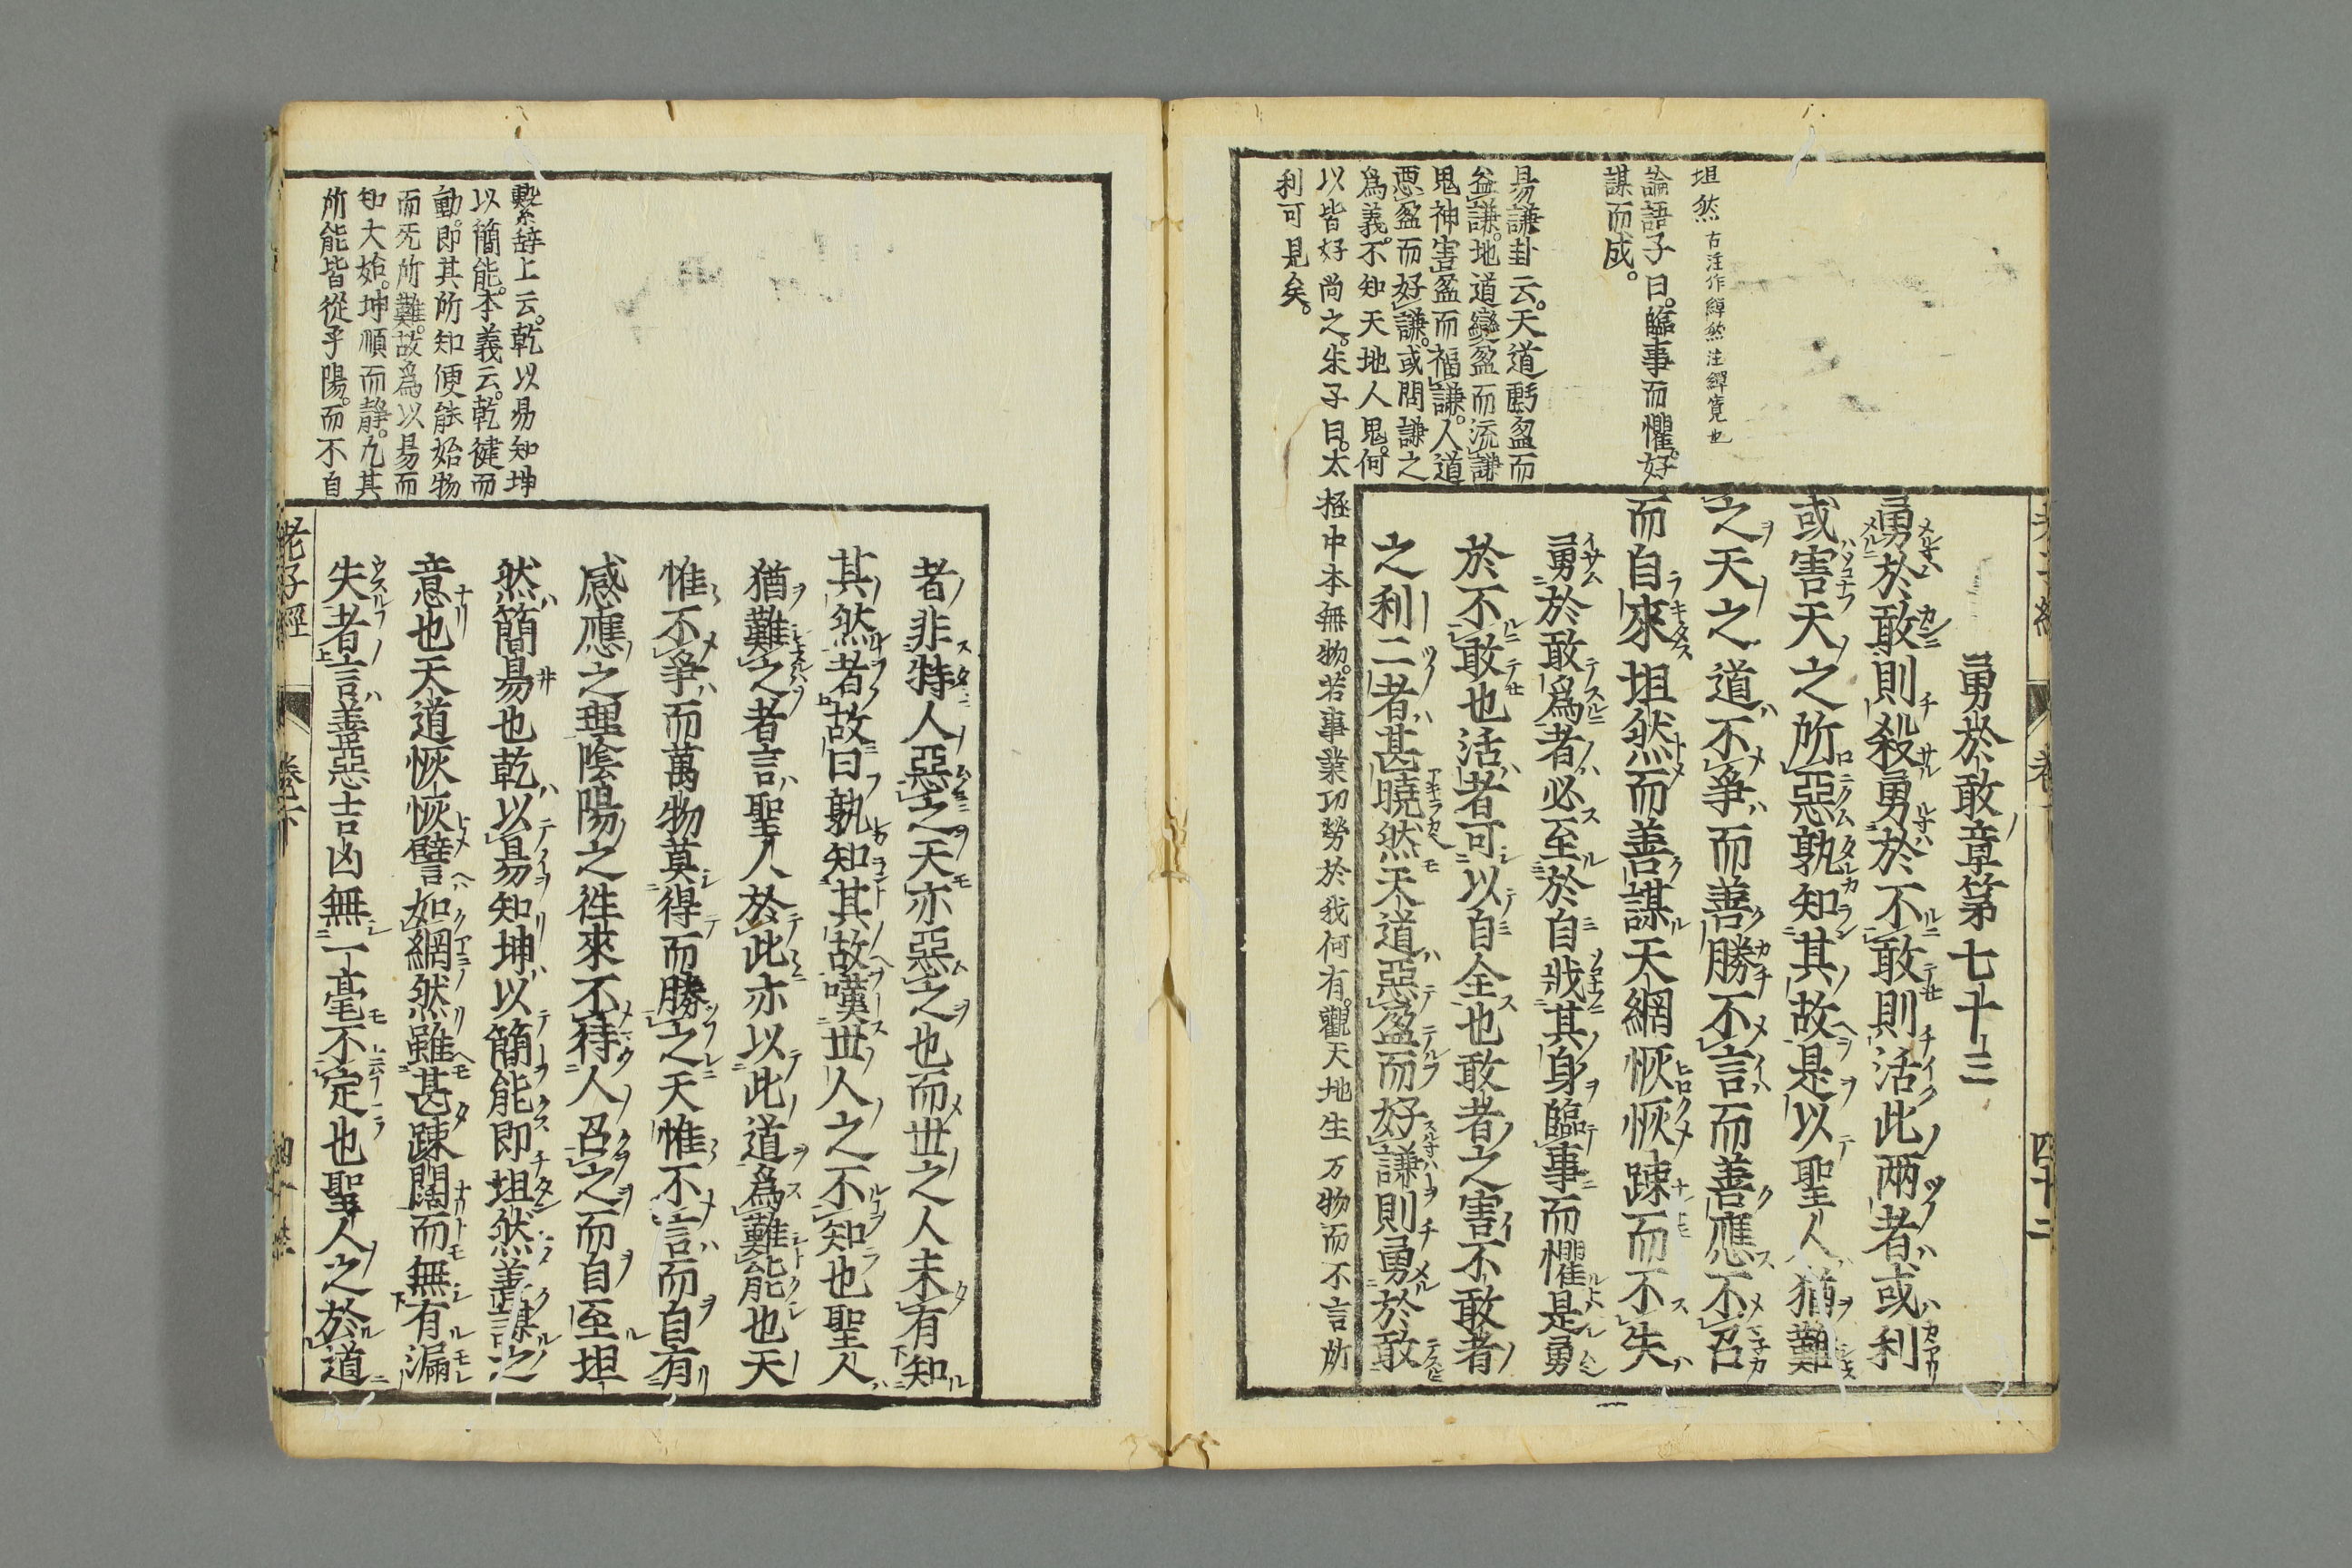 坦然古注作繟然注繟寬也
論語子曰。臨事而懼。好
謀而成。
易謙卦云。天道虧盈而
益謙。地道變盈而流謙
鬼神害盈而福謙。人道
惡盈而好謙。或問謙之
爲義。不知天地人鬼。何
以皆好尚之。朱子曰。太極中本無物。若事業功勞於我何有。觀天地生万物而不言所
利可見矣。
勇於敢章第七十三
勇於敢則殺勇於不敢則活此兩者或利
或害天之所惡孰知其故是以聖人猶難
之天之道不爭而善勝不言而善應不召
而自來坦然而善謀天網恢恢踈而不失
勇於敢爲者必至於自戕其身臨事而懼是勇
於不敢也活者可以自全也敢者之害不敢者
之利二者甚曉然天道惡盈而好謙則勇於敢
繫辞上云。乾以易知坤
以簡能。本義云。乾健而
動。即其所知便能始物
而无所難。故爲以易而
知大始。坤順而靜。凡其
所能皆從乎陽。而不自
者非特人惡之天亦惡之也而世之人未有知
其然者故曰孰知其故嘆世人之不知也聖人
猶難之者言聖人於此亦以此道爲難能也天
惟不爭而萬物莫得而勝之天惟不言而自有
感應之理陰陽之徃來不待人召之而自至坦
然簡易也乾以易知坤以簡能即坦然善謀之
意也天道恢恢譬如網然雖甚踈闊而無有漏
失者言善惡吉凶無一毫不定也聖人之於道
老子經
卷下